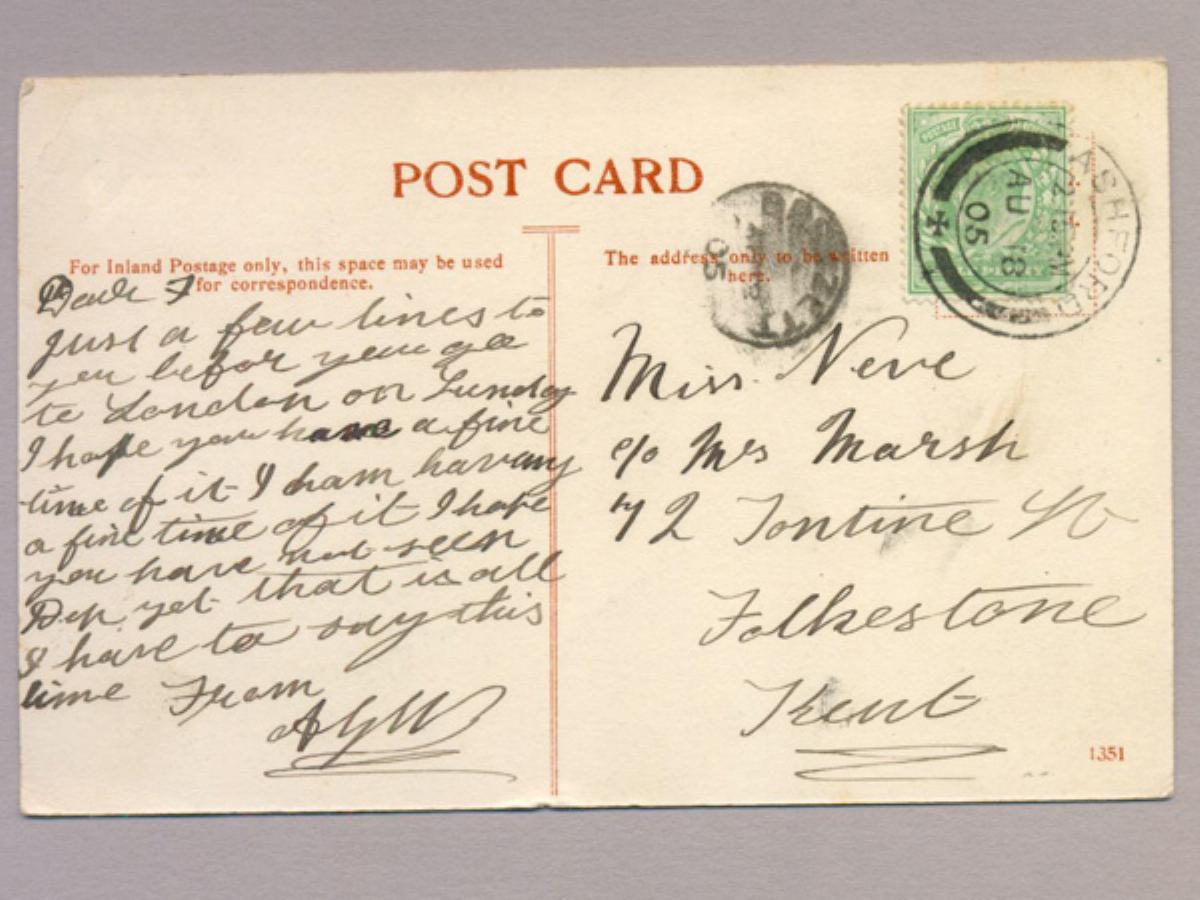 POST CARD
For Inland Postage only, this space may be used
for correspondence.
The address only to be written
here.
ASHFORD
AU 18
05
ZETT
05
Dear F
Just a few lines to
you befor you go
to London on Sunday
I hope you have a fine
time of it I ham having
a fine time of it I hope
you have not seen
yet that is all
I have to say this
time From
AGW
Miss Neve
c/o Mrs Marsh
72 Tontine St
Folkestone
Kent
1351